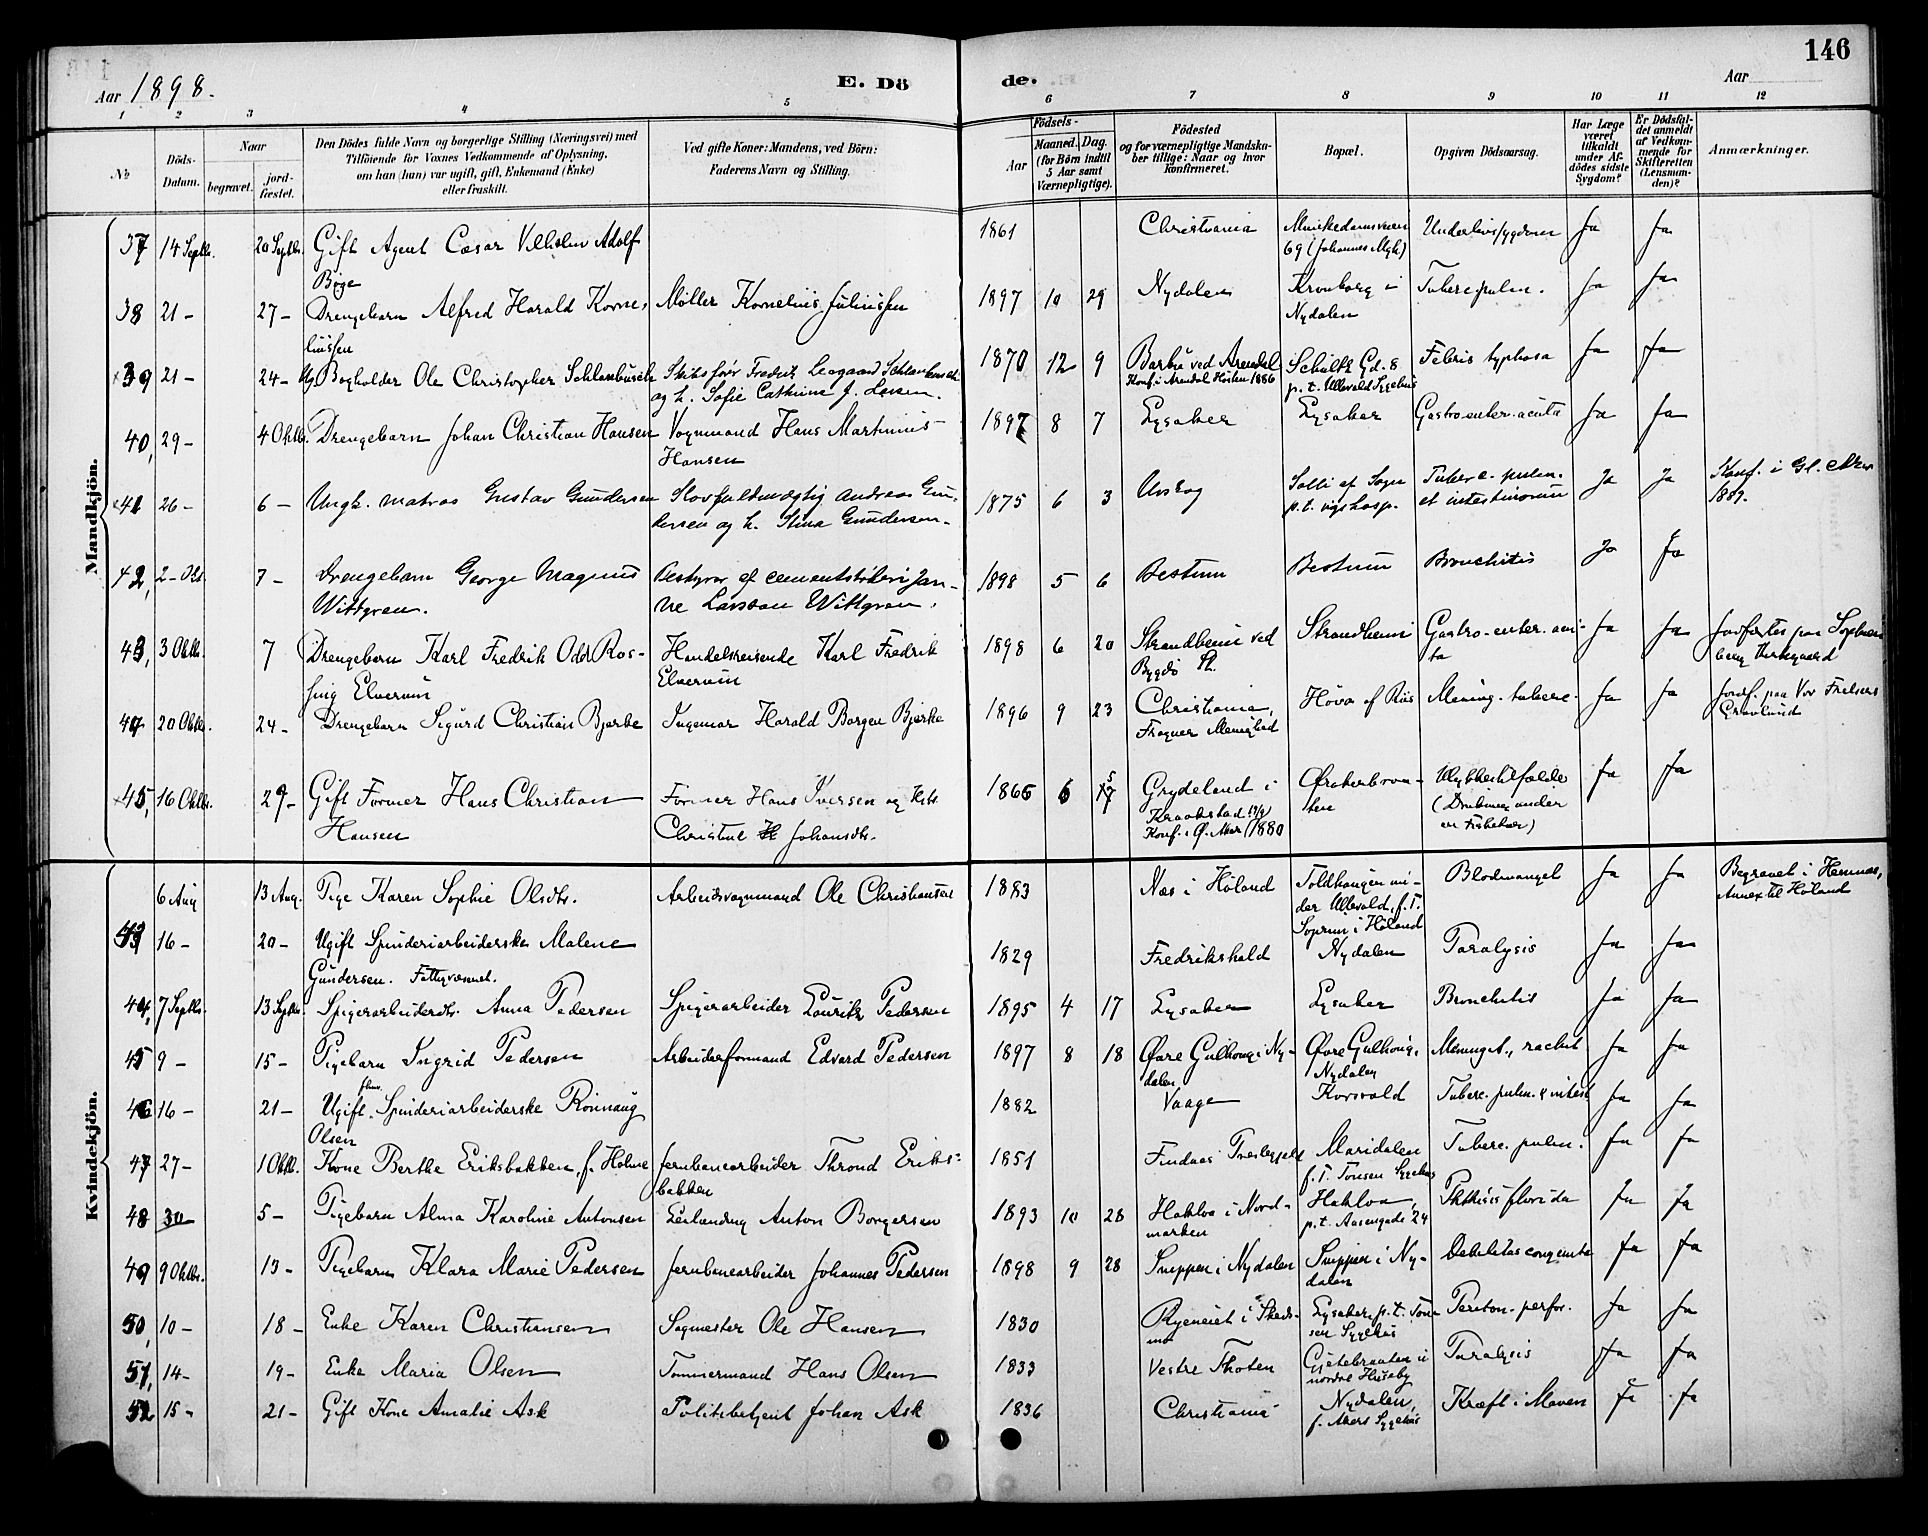 146
Aar 1898.
E. Dö
de.
Aar
1 2 3 4 5 6 7 8 9 10 11 12
No
Döds-Datum.
Naar
begravet.
jord-fæstet.
Den Dödes fulde Navn og borgerlige Stilling (Næringsvei) med
Tilföiende for Voxnes Vedkommende af Oplysning,
om han (hun) var ugift, gift, Enkemand (Enke)
eller fraskilt.
Ved gifte Koner: Mandens, ved Börn:
Faderens Navn og Stilling.
Födsels-
Aar
Maaned. Dag.
(for Börn indtil
5 Aar samt
Værnepligtige).
Födested
og for værnepligtige Mandska-
ber tillige: Naar og hvor
konfirmeret.
Bopæl.
Opgiven Dödsaarsag.
Har Læge
været
tilkaldt
under Af-
dödes sidste
Sygdom?
Er Dödsfal-
det anmeldt
af Vedkom-
mende for
Skifteretten
(Lensman-
den)?
Anmærkninger.
Mandkjön.
37 14 Septb. 20 Septb. Gift Agent Cæsar Vilhelm Adolf 1861 Christiania Munkedamsveien Underlivssygdom Ja Ja
Böge 69 (Johannes Mgh)
38 21 - 27 - Drengebarn Alfred Harald Korne- Møller Kornelius Juliussen 1897 10 29 Nydalen Kronborg i Tuberc. pulm. Ja Ja
liussen Nydalen
39 21 - 24 - Ug. Bogholder Ole Christopher Schlanbusch Skibsfører Fredrik Schlanbusch 1870 12 9 Barbu ved Arendal Schultz Gd. 8 Febris typhosa Ja Ja
og h. Sofie Cathrine J. Larsen. Konf. i Arendal Høsten 1886 p. t. Ullevold Sygehus
40, 29 - 4 Oktb. Drengebarn Johan Christian Hansen Vognmand Hans Martinius 1897 8 7 Lysaker Lysaker Gastroenter. acuta Ja Ja
Hansen
41 26 - 6 - Ungk. matros Gustav Gundersen Skovfuldmægtig Andreas Gun- 1875 6 3 Urskog Solli af Sogn Tuberc. pulm. Ja Ja Konf. i Gl. Aker
dersen og h. Stina Gundersen. p.t. rigshosp. et intestinorum
42, 2 - Okt. 7 - Drengebarn George Magnus Bestyrer af cementstöberi Jan- 1898 5 6 Bestum Bestum Bronchitis Ja Ja
Wittgren. ne Larsson Wittgren.
43, 3 Oktb. 7 Drengebarn Karl Fredrik Odd Ros- Handelsreisende Karl Fredrik 1898 6 20 Strandheim ved Strandheim Gastro-enter. acu- Ja Ja Jordfæstet paa
sing Elvervin Elvervin Bygdö St. ta
44 20 Oktb. 24 - Drengebarn Sigurd Christian Bjerke Ingeniør Harald Borgen Bjerke 1896 9 23 Christiania, Höva af Riis Mening. tuberc. Ja Ja Jordf. paa Vor Frelsers
Frogner Menighed Gravlund
45, 16 Oktb. 29 - Gift Former Hans Christian Former Hans Iversen og Hst. 1866 6 17 Grydeland i Ørakerbron- Ulykkestilfælde Ja Ja
Hansen Christine Johansdtr. Kraakstad ken (Drukning under
Konf. i Ø. Aker 1880 en Fisketur)
Kvindekjön.
6 Aug 13 Aug. Pige Karen Sophie Olsdtr. Arbeidsvognmand Ole Christiansen 1883 Næs i Höland Toldhaugen un- Blodmangel Ja Ja Begravet i Hemnæs,
der Ullevold, f. T. Annex til Höland
i Höland
43 16 - 20 - Ugift Spinderiarbeiderske Malene 1829 Fredrikshald Nydalen Paralysis Ja Ja
Gundersen. Fattigvæsenet.
44, 7 Septb. 13 Septb. Spigerarbeiderdtr. Anna Pedersen Spigerarbeider Lauritz Pedersen 1895 4 17 Lysaker Lysaker Bronchitis Ja Ja
45 9 - 15 - Pigebarn Ingrid Pedersen Arbeiderformand Edvard Pedersen 1897 8 18 Øvre Gulhaug i Ny- Øvre Gulhaug, Meningit., rachit. Ja Ja
dalen Nydalen
46 16 - 21 - Ugift. Spinderiarbeiderske Rönnaug 1882 Vaage Korsvold Tuberc. pulm. & intest Ja Ja
Olsen
47 27 - 1 Oktb. Kone Berthe Eriksbakken, f. Holme Jernbanearbeider Thrond Eriks- 1851 Findaas Maridalen Tuberc. pulm. Ja Ja
bakken f. T. Tonsen Sygehus
48 30 5 - Pigebarn Alma Karoline Antonsen Leilending Anton Borgersen 1893 10 28 Hakloa i Nord- Hakloa, Phthisis florida Ja Ja
marken p.t. Aasengade 24
49 9 Oktbr. 13 - Pigebarn Klara Marie Pedersen Jernbanearbeider Johannes Pedersen 1898 9 28 Snippen i Nydalen Snippen i Ny- Debilitas congenita Ja Ja
dalen
50, 10 - 18 - Enke Karen Christiansen Sagmester Ole Hansen 1830 Ryeneiet i Skeds- Lysaker, p. t. Ton- Periton. perfor. Ja Ja
mo sen Sygehus
51, 14 - 19 - Enke Maria Olsen Tømmermand Hans Olsen 1833 Vestre Thoten Gjetebraaten i Paralysis Ja Ja
nordre Huseby
52 15 - 21 - Gift Kone Amalie Ask Politibetjent Johan Ask 1836 Christiania Nydalen, Kræft i Maven Ja Ja
f. Akers Sygehus